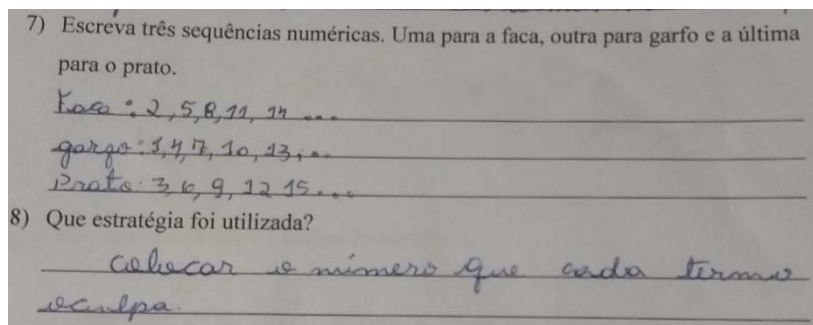 7) Escreva três sequências numéricas. Uma para a faca, outra para garfo e a última
para o prato.
Faca: 2, 5, 8, 11, 14 ...
garfo: 1, 4, 7, 10, 13, ...
Prato: 3, 6, 9, 12 15 ...
8) Que estratégia foi utilizada?
colocar o número que cada termo
oculpa.